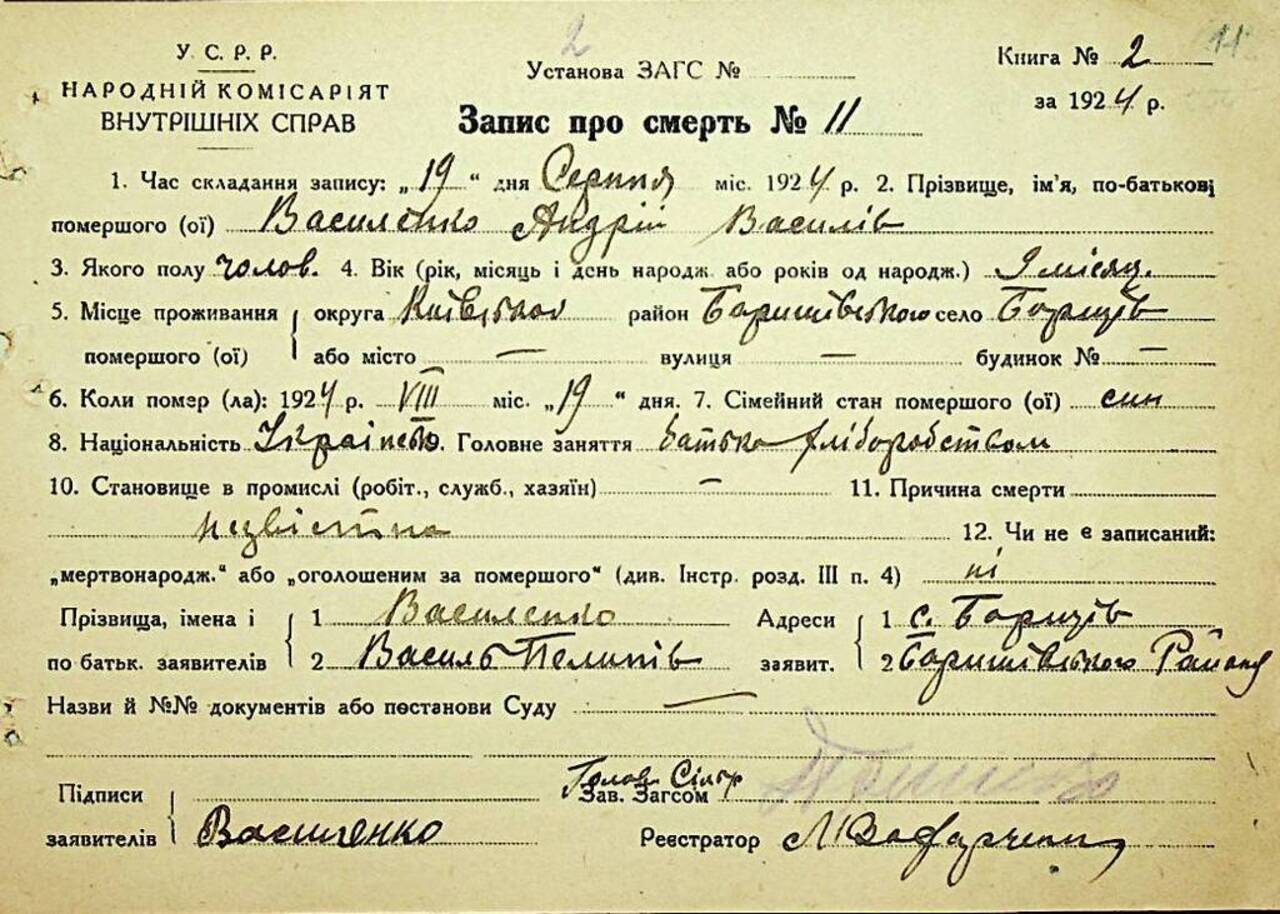 2
11
У. С. Р. Р.
НАРОДНІЙ КОМІСАРІЯТ
ВНУТРІШНІХ СПРАВ
Установа ЗАГС №
Книга № 2
за 1924 р.
Запис про смерть № 11
1. Час складання запису: „19“ дня Серпня міс. 1924 р. 2. Прізвище, ім'я, по-батькові
помершого (ої) Василенко Андрій Василів
3. Якого полу чолов. 4. Вік (рік, місяць і день народж. або років од народж.) 9 місяц.
5. Місце проживання округа Київської район Баришівського село Борщів
помершого (ої) або місто — вулиця — будинок № —
6. Коли помер (ла): 1924 р. VIII міс. „19“ дня. 7. Сімейний стан помершого (ої) син
8. Національність Українськ. Головне заняття батька хліборобством
10. Становище в промислі (робіт., служб., хазяїн) — 11. Причина смерти
незвістна
12. Чи не є записаний:
„мертвонародж.“ або „оголошеним за помершого“ (див. Інстр. розд. III п. 4) ні
Прізвища, імена і 1 Василенко Адреси 1 с. Борщів
по батьк. заявителів 2 Василь Пелипів заявит. 2 Баришівського Району
Назви й №№ документів або постанови Суду —
Підписи
Голов Сільр
Зав. Загсом
заявителів Василенко Реєстратор